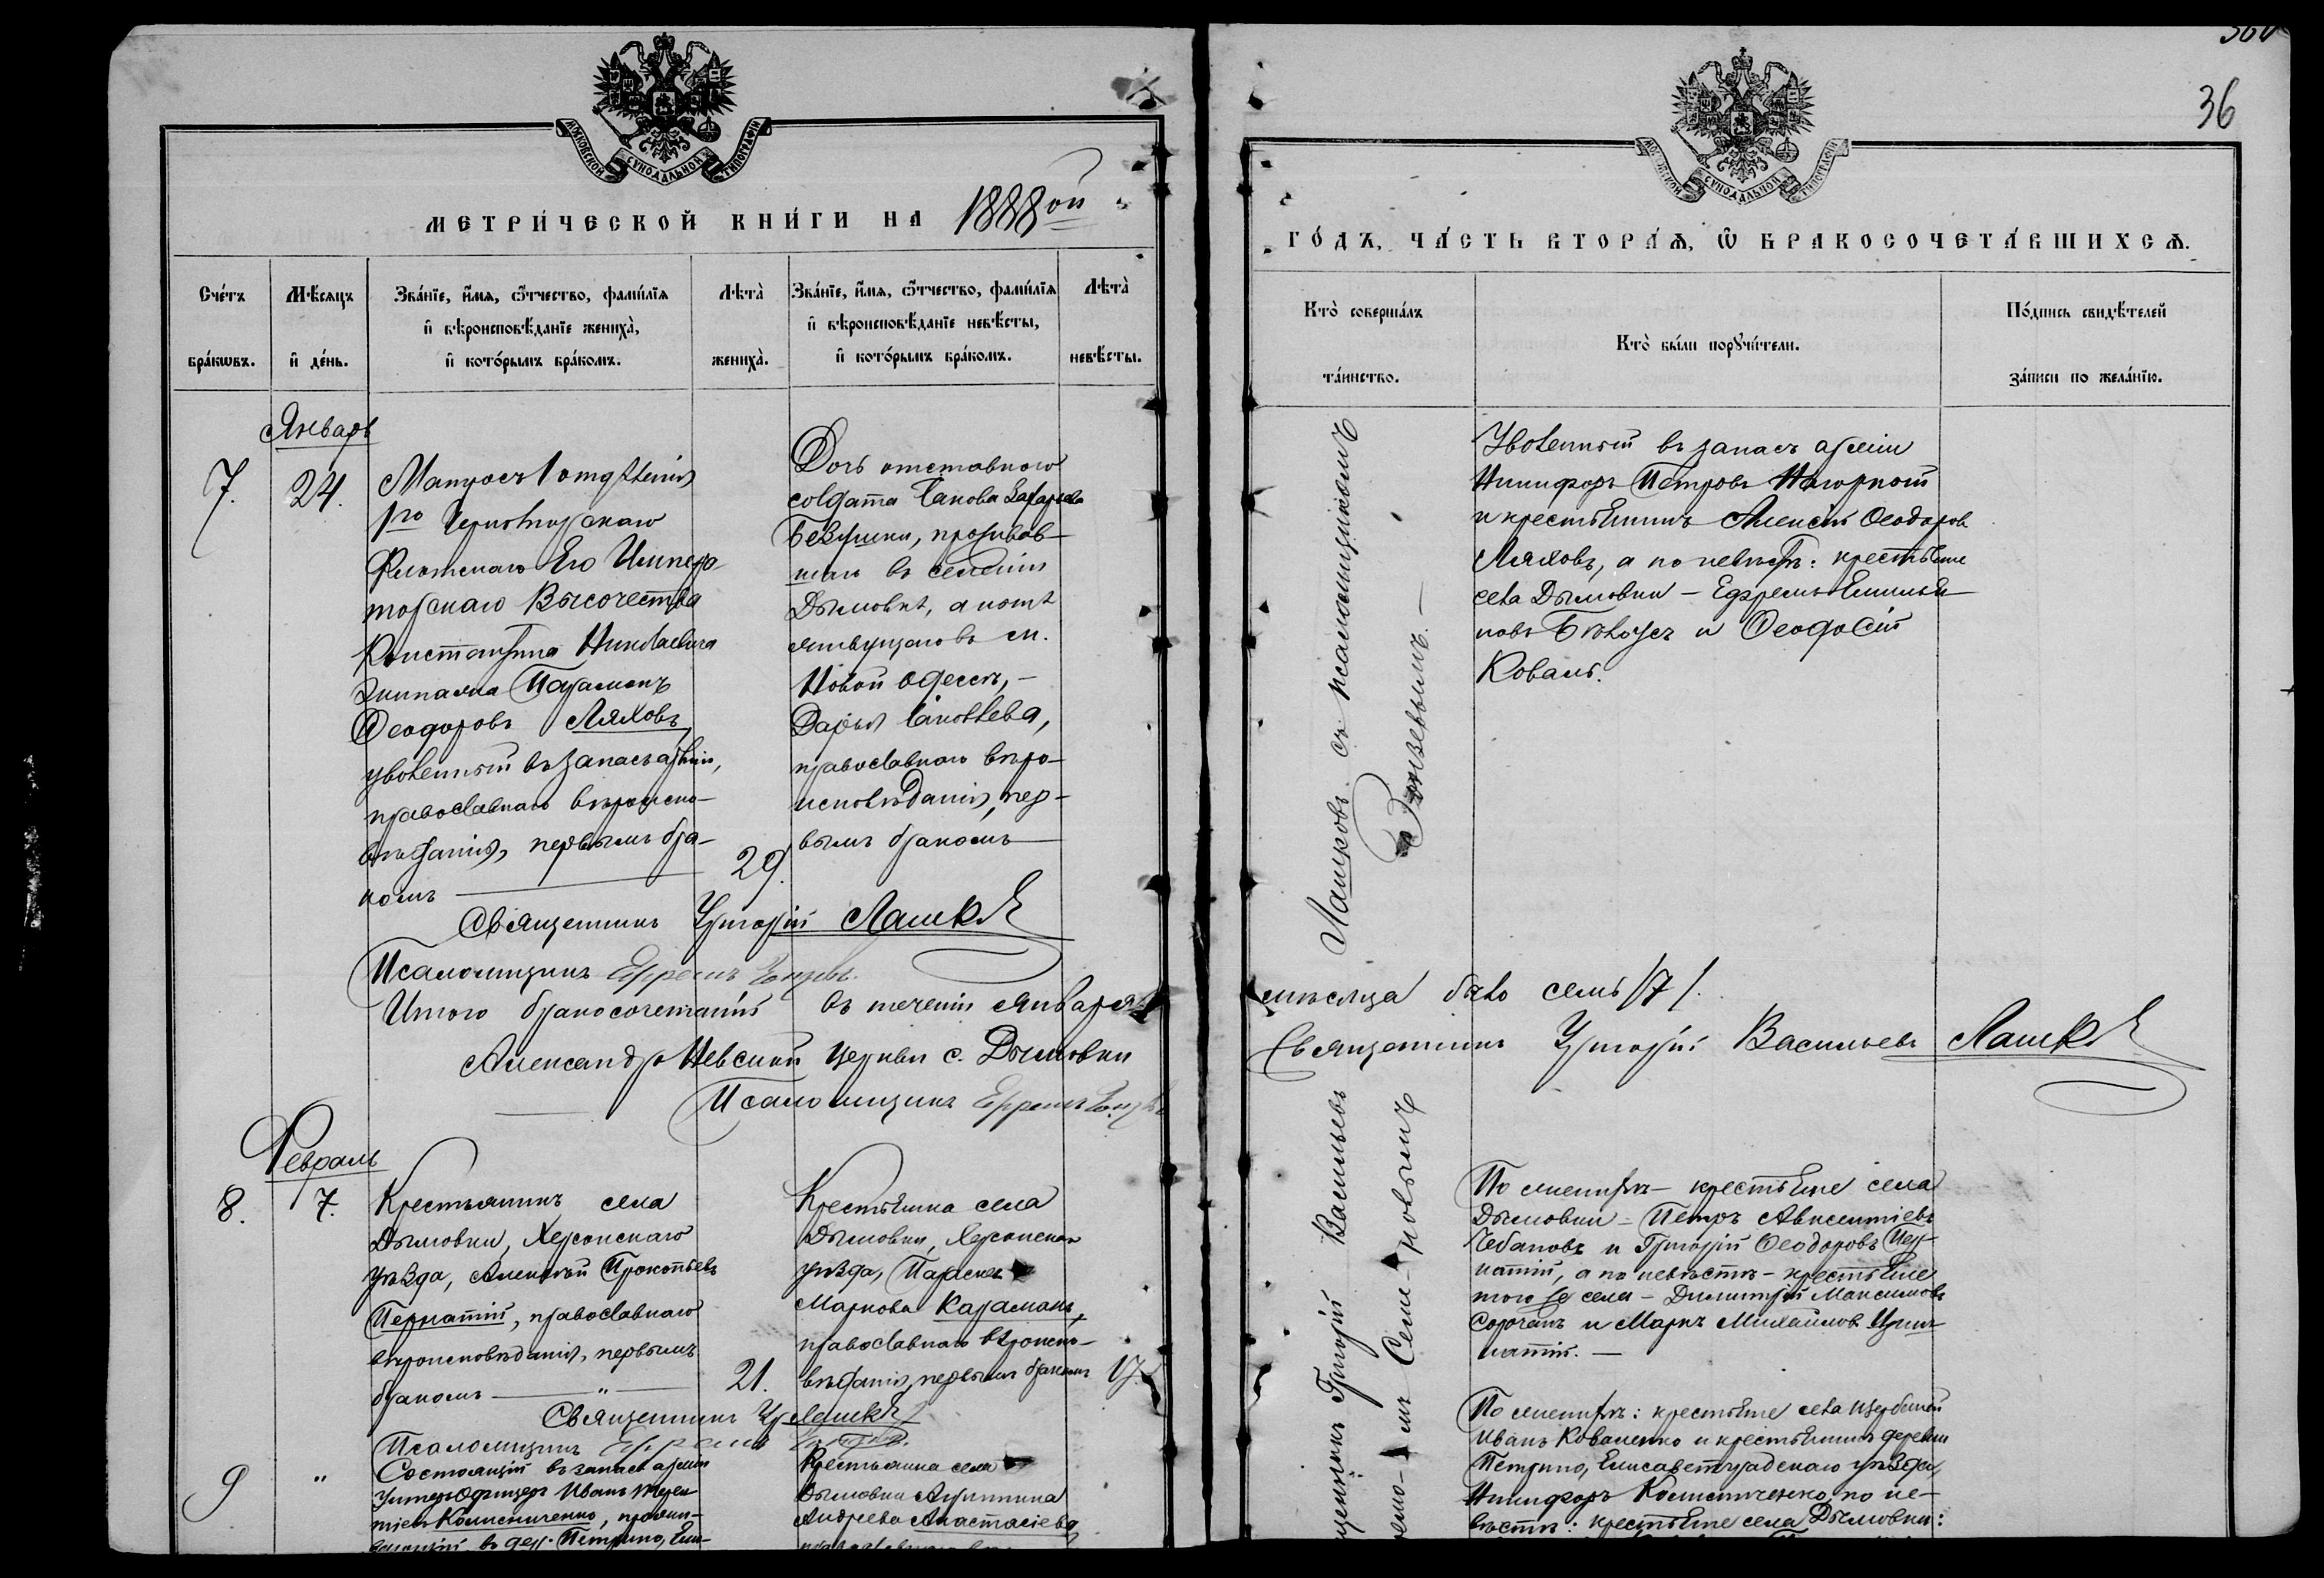 МОСКОВСКОЙ СУНОДАЛЬНОЙ ТИПОГРАФІИ
МЕТРИ́ЧЕСКОЙ КНИ́ГИ НА 1888ой
Сче́тъ бра́кωвъ.
Мѣсяцъ и҆ де́нь.
Зва́нїе, и҆́мѧ, ѻ҆́тчество, фами́лїѧ
и҆ вѣроисповѣ́данїе жениха̀,
и҆ кото́рымъ бра́комъ.
Лѣта̀ жениха̀.
Зва́нїе, и҆́мѧ, ѻ҆́тчество, фами́лїѧ
и҆ вѣроисповѣ́данїе невѣ́сты,
и҆ кото́рымъ бра́комъ.
Лѣта̀ невѣ́сты.
Январь
7.
24.
Матросъ 1 отдѣленія
1го Черноморскаго
Флотскаго Его Импера-
торскаго Высочества
Константина Николаевича
Экипажа Парамонъ
Ѳеодоровъ Ляховъ,
уволенный въ запасъ арміи,
православнаго вѣроиспо-
вѣданія, первымъ бра-
комъ
29.
Дочь отставного
солдата Іакова Захарьева
Безушки, проживав-
шаго въ селеніи
Дымовкѣ, а нонѣ
живущаго въ м.
Новой Одессѣ, –
Дарья Іаковлева,
православнаго вѣро-
исповѣданія, пер-
вымъ бракомъ
Священникъ Григорій Лашк
Псаломщикъ Ефремъ
Итого бракосочетаній въ теченіи января
Александро Невской церкви с. Дымовки
Псаломщикъ Ефремъ
Февраль
8.
7.
Крестьянинъ села
Дымовки, Херсонскаго
уѣзда, Алексѣй Прокопьевъ
Пернатій, православнаго
вѣроисповѣданія, первымъ
бракомъ — " —
21.
Крестьянка села
Дымовки, Херсонскаго
уѣзда, Параскева
Маркова Караманъ,
православнаго вѣроиспо-
вѣданія, первымъ бракомъ
17.
Священникъ Гр Лашк
Псаломщикъ Ефремъ
9
"
Состоящій въ запасѣ арміи
Унтеръ Офицеръ Иванъ Терен
тіевъ Колисниченко, прожи-
вающій въ дер. Петрино, Ели-
Крестьянка села
Дымовки Агриппина
Андреева Анастасіева,
36
МОСКОВСКОЙ СУНОДАЛЬНОЙ ТИПОГРАФІИ
ГО́ДЪ, ЧА́СТЬ ВТОРА́Ѧ, Ѡ҆ БРАКОСОЧЕТА́ВШИХСѦ.
Кто̀ соверша́лъ
та́инство.
Кто̀ бы́ли порꙋчи́тели.
По́дпись свидѣ́телей
за́писи по жела́нїю.
съ псаломщикомъ
Уволенный въ запасъ арміи
Никифоръ Петровъ Нагорный
и крестьянинъ Алексѣй Ѳеодоровъ
Ляховъ, а по невѣстѣ: крестьяне
села Дымовки – Ефремъ Емилья
новъ Бѣлоусъ и Ѳеодосій
Коваль.
мѣсяца было семь /7/.
Священникъ Григорій Васильевъ Лашк
Священникъ Григорій Васильевъ
По женихѣ – крестьяне села
Дымовки – Петръ Авксентіевъ
Чебановъ и Григорій Ѳеодоровъ Пер-
натій, а по невѣстѣ – крестьяне
того же села – Димитрій Максимовъ
Сорочанъ и Маркъ Михайловъ
По женихѣ: крестьяне села Щербаней
Иванъ Коваленко и крестьянинъ деревни
Петрино, Елисаветградскаго уѣзда,
Никифоръ Колисниченко, по не-
вѣстѣ: крестьяне села Дымовки: